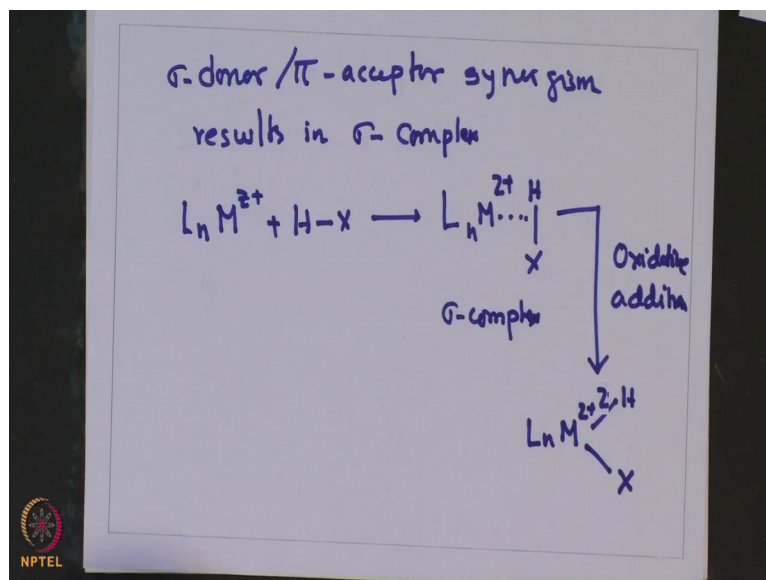 σ-donor/π-acceptor synergism
results in σ-complex
LnM^z+ + H-X → LnM^z+....H
X
Oxidative
addition
σ-complex
LnM^2+z H
X
NPTEL